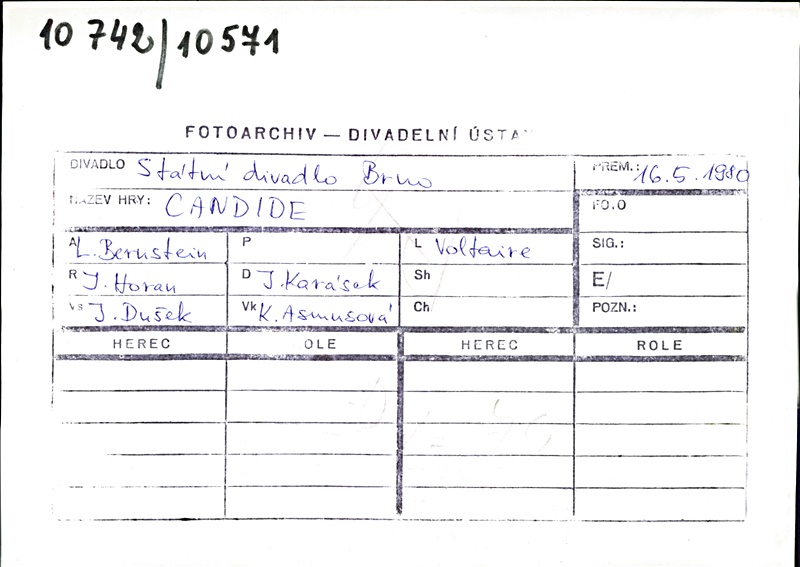 10 742/10 571
FOTOARCHIV — DIVADELNÍ ÚSTA
DIVADLO Státní divadlo Brno PREM.: 16.5.1980
NÁZEV HRY: CANDIDE FOTO
A L. Bernstein P L Voltaire SIG.:
R J. Horan D J. Karásek Sh E/
Vs J. Dušek Vk K. Asmusová Ch POZN.:
HEREC OLE HEREC ROLE